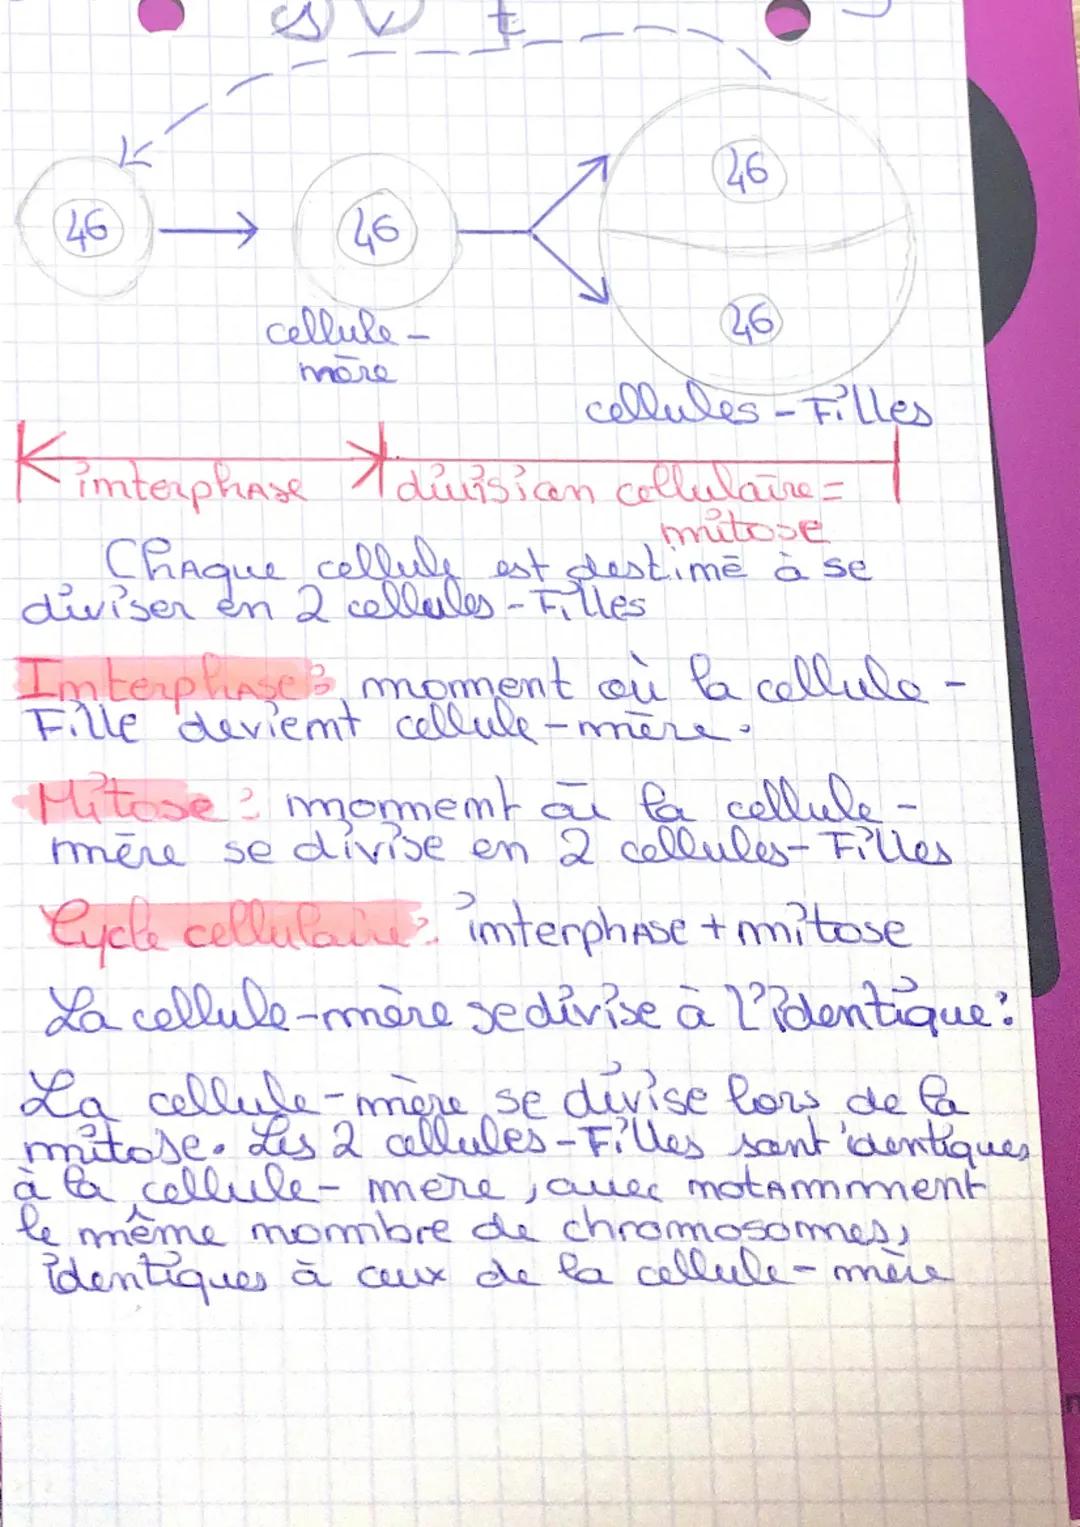 SV
46
46
46
46
cellule-
mère
cellules-Filles
interphase
division cellulaire =
mitose
Chaque cellule est destiné à se
diviser en 2 cellules-Filles
Interphase : moment où la cellule-
Fille devient cellule-mère.
Mitose : moment où la cellule-
mère se divise en 2 cellules-Filles
Cycle cellulaire : interphase + mitose
La cellule-mère se divise à l'identique :
La cellule-mère se divise lors de la
mitose. Les 2 cellules-Filles sont identiques
à la cellule-mère, avec notamment
le même nombre de chromosomes,
identiques à ceux de la cellule-mère